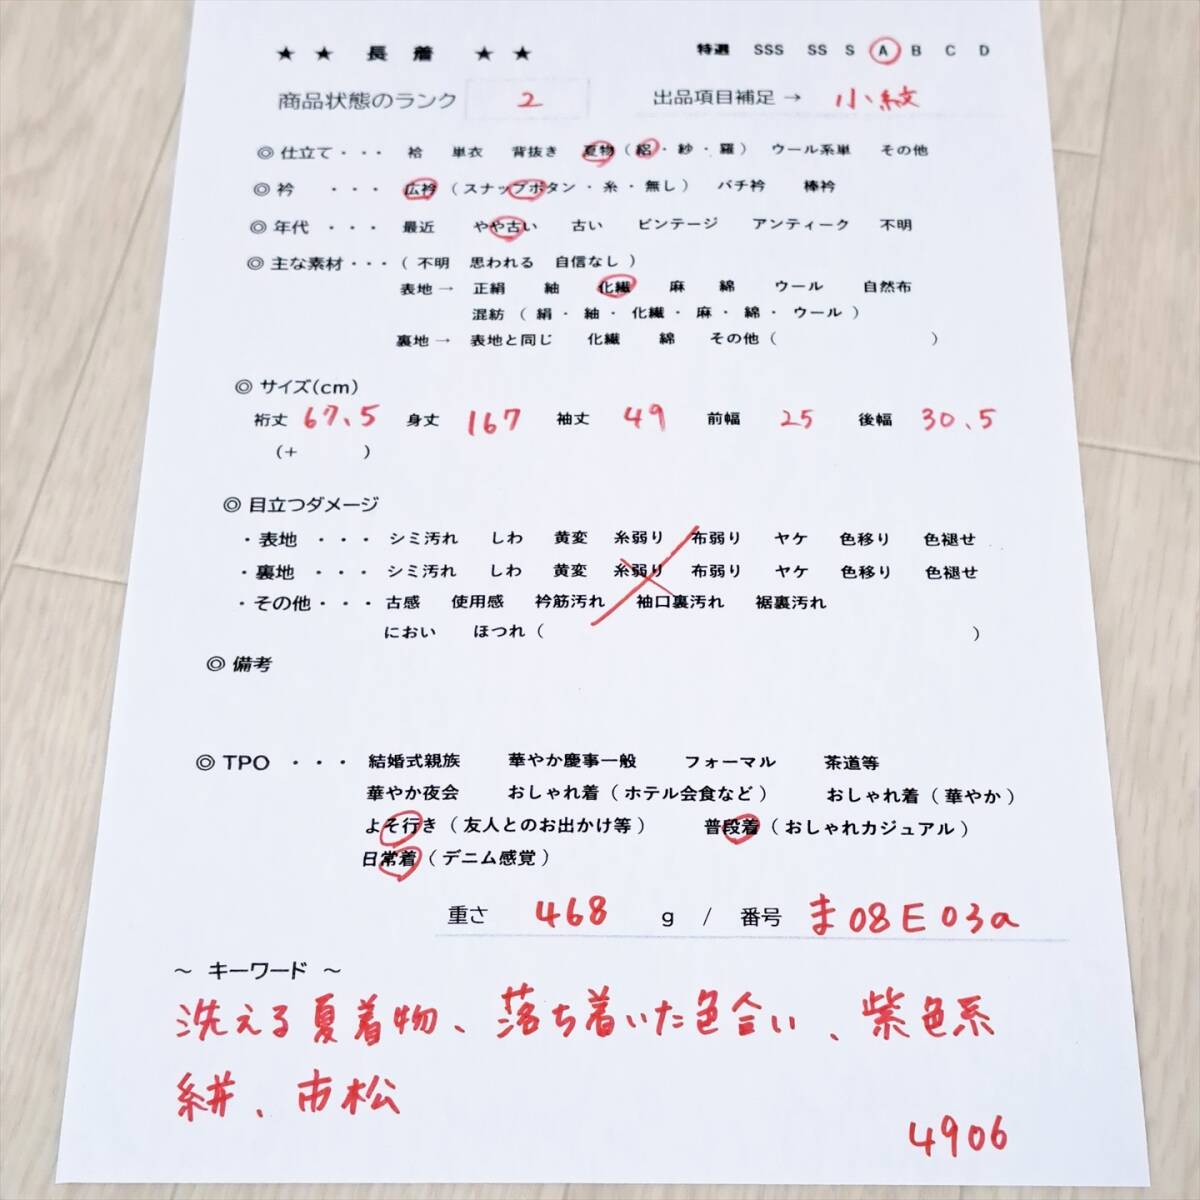 ★ ★ 長 着 ★ ★ 特選 SSS SS S A B C D
商品状態のランク 2 出品項目補足→ 小紋
◎ 仕立て・・・ 袷 単衣 背抜き 夏物(絽・紗・羅) ウール系単 その他
◎ 衿 ・・・ 広衿(スナップボタン・糸・無し) バチ衿 棒衿
◎ 年代 ・・・ 最近 やや古い 古い ビンテージ アンティーク 不明
◎ 主な素材・・・(不明 思われる 自信なし)
表地→ 正絹 紬 化繊 麻 綿 ウール 自然布
混紡(絹・紬・化繊・麻・綿・ウール)
裏地→ 表地と同じ 化繊 綿 その他( )
◎ サイズ(cm)
裄丈 67.5 身丈 167 袖丈 49 前幅 25 後幅 30.5
(+ )
◎ 目立つダメージ
・表地 ・・・ シミ汚れ しわ 黄変 糸弱り 布弱り ヤケ 色移り 色褪せ
・裏地 ・・・ シミ汚れ しわ 黄変 糸弱り 布弱り ヤケ 色移り 色褪せ
・その他・・・ 古感 使用感 衿筋汚れ 袖口裏汚れ 裾裏汚れ
におい ほつれ( )
◎ 備考
◎ TPO ・・・ 結婚式親族 華やか慶事一般 フォーマル 茶道等
華やか夜会 おしゃれ着(ホテル会食など) おしゃれ着(華やか)
よそ行き(友人とのお出かけ等) 普段着(おしゃれカジュアル)
日常着(デニム感覚)
重さ 468 g / 番号 ま08E03a
~ キーワード ~
洗える夏着物、落ち着いた色合い、紫色系
絣、市松
4906